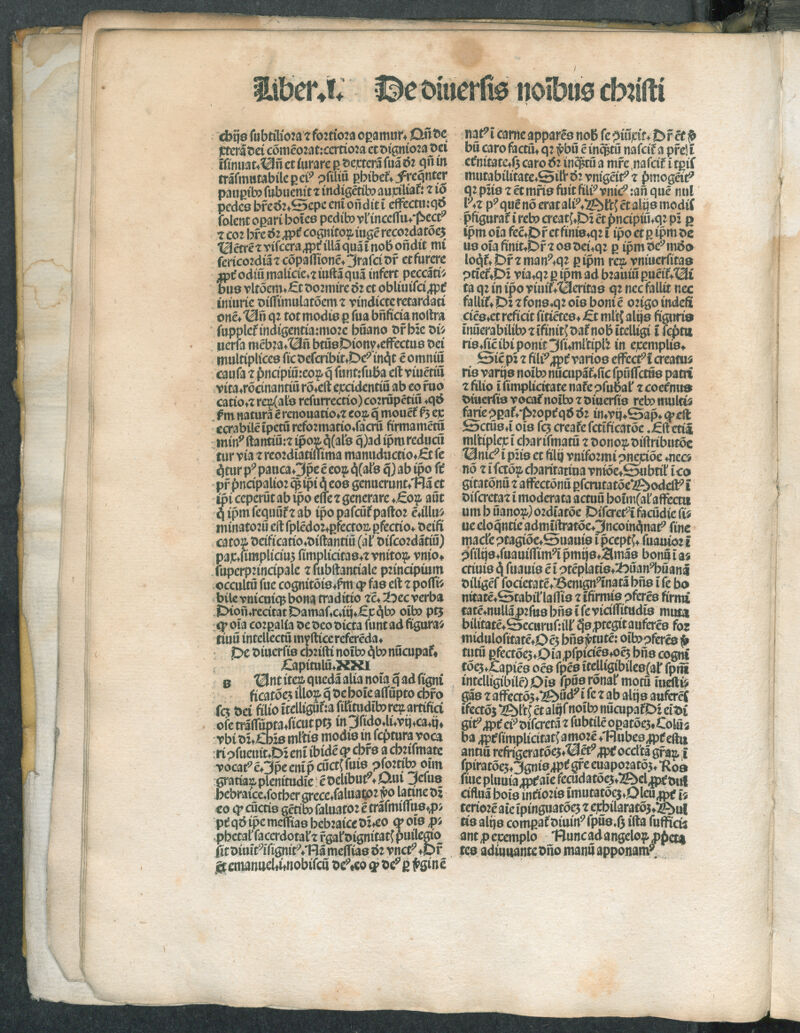 Liber.I. De diuersis noībus christi
chijs subtiliora ⁊ fortiora oꝑamur. Qn̄ de
xterā dei cōmēorat:certiora et digniora dei
īsinuat. Un̄ et iurare ꝑ dexterā suā dr̄ qn̄ in
trāsmutabile ꝑ eiꝰ ꝯsiliū ꝑhibet᷑. Freqn̄ter
pauꝑibꝰ subuenit ⁊ indigētibꝰ auxiliat᷑: ⁊ iō
pedes hr̄e dr̄. Sepe eni on̄dit ī effectu:qđ
solent oꝑari hoīes pedibꝰ vl̓ incessu. Pectꝰ
⁊ cor hr̄e dr̄ ꝓpt̓ cognitoꝝ iugē recordatōeꝫ
Uētrē ⁊ viscera ꝓpt̓ illā quā ī nob̓ on̄dit mi
sericordiā ⁊ cōpassionē. Irasci dr̄ et furere
ꝓpt̓ odiū malicie. ⁊ iustā quā infert peccāti-
bus vltōem. Et dormire dr̄ et obliuisci ꝓpt̓
iniurie dissimulatōem ⁊ vindicte retardati
onē. Un̄ qꝛ tot modis ꝑ sua bn̄ficia nostra
supplet᷑ indigentia:more hūano dr̄ hr̄e di-
uersa mēbra. Un̄ btūs Diony. effectus dei
multiplices sic describit. Deꝰ inqͥt ē omniū
causa ⁊ pͥncipiū:eoꝝ ꝗ sunt:suba est viuētiū
vita.rōcinantiū rō.est excidentiū ab eo ꝛeuo
catio. ⁊ reꝝ(al̓s resurrectio) corrūpētiū. qđ
fm̄ naturā ē renouatio. ⁊ eoꝝ ꝗ mouēt᷑ fꝫ ex
ecrabilē īpetū reformatio.sacrū firmamētū
minꝰ stantiū: ⁊ ipoꝝ ꝗ(al̓s ꝗ)ad ipm reducū
tur via ⁊ reordiatissima manuductio. Et se
qͥtur pꝰ pauca. Ipe ē eoꝝ ꝗ(al̓s ꝗ) ab ipo sē
pr̄ pͥncipalior qꝫ ipi ꝗ eos genuerunt. Nā et
ipi ceperūt ab ipo esse ⁊ generare. Eoꝝ aūt
ꝗ ipm sequūt᷑ ⁊ ab ipo pascūt᷑ pastor ē. illu-
minatorū est splēdor.ꝑfectoꝝ ꝑfectio. deifi
catoꝝ deificatio.distantiū (al̓ discordātiū)
pax.simpliciuꝫ simplicitas. ⁊ vnitoꝝ vnio.
superprincipale ⁊ substantiale principium
occultū sue cognitōis.fm̄ ꝙ fas est ⁊ possi-
bile vnicuiqꝫ bona traditio ⁊ē. Hec verba
Dion̄.recitat Damas.c.iij. Ex qͥbꝰ oībꝰ ptꝫ
ꝙ oīa corꝑalia de deo dicta sunt ad figura-
tiuū intellectū mystice referēda.
De diuersis christi noībꝰ qͥbꝰ nūcupat᷑.
Capitulū.XXI
s Unt iteꝝ quedā alia noīa ꝗ ad signi
ficatōeꝫ illoꝝ ꝗ de hoīe assūpto chr̄o
scꝫ dei filio ītelligūt᷑:a sil̓itudībꝰ reꝝ artifici
ose trāssūpta.sicut ptꝫ in Isido.li.vij.ca.ij.
vbi dr̄. Chr̄s ml̓tis modis in scͥptura voca
ri ꝯsueuit. Dr̄ eni ibidē ꝙ chr̄s a chrismate
vocatꝰ ē. Ipe eni pͥ cūctꝭ suis ꝯsortibꝰ oīm
gratiaꝝ plenitudīe ē delibutꝰ. Qui Jesus
hebraice.sother grece.saluator ꝟo latine dr̄
eo ꝙ cūctis gētibꝰ saluator ē trāsmissus.ꝓ-
pt̓ qđ ipe messias hebraice dr̄.eo ꝙ oīs ꝓ-
phetal̓ sacerdotal̓ ⁊ r̄gal̓ dignitatꝭ pͥuilegio
sit diuīt̓ īsignitꝰ. Nā messias dr̄ vnctꝰ. Dr̄
⁊ emanuel.i.nobiscū deꝰ.eo ꝙ deꝰ ꝑ ꝟginē
natꝰ ī carne apparēs nob̓ se ꝯiūxit. Dr̄ ēt ꝟ
bū caro factū. qꝛ ꝟbū ē inqͣtū nascit᷑ a pr̄e ī
et̓nitate.sꝫ caro dr̄ inqͣtū a mr̄e nascit᷑ ī tpīs
mutabilitate. Sil̓r dr̄ vnigēitꝰ ⁊ pͥmogēitꝰ
qꝛ pr̄is ⁊ ēt mr̄is fuit filiꝰ vnicꝰ:an̄ quē nul
lꝰ. ⁊ pꝰ quē nō erat aliꝰ. Ml̓tꝭ ēt alijs modis
pͥfigurat᷑ ī rebꝰ creatꝭ. Dr̄ ēt pͥncipiū.qꝛ pr̄ ꝑ
ipm oīa fec̄. Dr̄ et finis.qꝛ ī ipo et ꝑ ipm de
us oīa finit. Dr̄ ⁊ os dei.qꝛ ꝑ ipm deꝰ mūdo
loqͥt᷑. Dr̄ ⁊ manꝰ.qꝛ ꝑ ipm reꝝ vniuersitas
ꝯtīet᷑. Dr̄ via.qꝛ ꝑ ipm ad brauiū puēit᷑. Ui
ta qꝛ in ipo viuit᷑. Ueritas qꝛ nec fallit nec
fallit᷑. Dr̄ ⁊ fons.qꝛ oīs boni ē origo indefi
ciēs.et reficit sitiētes. Et ml̓tꝭ alijs figuris
īnūerabilibꝰ ⁊ īfinitꝭ dat᷑ nob̓ ītelligi ī scͥptu
ris.sic̄ ibi ponit Isi.ml̓tiplꝭ in exemplis.
Sic̄ pr̄ ⁊ filiꝰ ꝓpt̓ varios effectꝰ ī creatu-
ris varijs noībꝰ nūcupāt᷑.sic spūssctūs patri
⁊ filio ī simplicitate nat̓e ꝯsubal̓ ⁊ coet̓nus
diuersis vocat᷑ noībꝰ ⁊ diuersis rebꝰ multi-
farie ꝯꝑat᷑. Propt̓ qđ dr̄ in.vij. Sap. ꝙ est
Sctūs.ī oīs scꝫ creat̓e sctīficatōe. Est etiā
ml̓tiplex ī charismatū ⁊ donoꝝ distributōe
Unicꝰ ī pr̄is et filij vniformi ꝯnexiōe.nec-
nō ⁊ ī sctōꝝ charitatiua vniōe. Subtil̓ ī co
gitatōnū ⁊ affectōnū ꝑscrutatōe Modestꝰ ī
discreta ⁊ ī moderata actuū hoīm(al̓ affectu
um hūanoꝝ)ordiatōe Discretꝰ ī facūdie si-
ue eloqͥntie admīstratōe. Incoinqͥnatꝰ sine
macle ꝯtagiōe. Suauis ī pͥceptꝭ. suauior ī
ꝯsilijs.suauissimꝰ ī pͥmijs. Amās bonū ī a-
ctiuis ꝗ suauis ē ī ꝯtēplatīs. Hūanꝰ hūanā
diligēs societatē. Benignꝰ īnatā hn̄s ī se bo
nitatē. Stabil̓ lassis ⁊ īfirmis ꝯferēs firmi
tatē.nullā prsus hn̄s ī se vicissitudis muta
bilitatē. Securus:ill̓ qͦs ꝓtegit auferēs for
midulositatē. Oēꝫ hn̄s ꝟtutē: oībꝰ ꝯferēs ꝟ
tutū ꝑfectōeꝫ. Oīa ꝓspiciēs.oēꝫ hn̄s cogni
tōeꝫ. Capiēs oēs spēs ītelligibiles(al̓ spm̄
intelligibilē) Oīs spūs rōnal̓ motū īuesti-
gās ⁊ affectōꝫ. Mūdꝰ ī se ⁊ ab alijs auferēs
īfectōꝫ Ml̓tꝭ ēt alijs noībꝰ nūcupat᷑ Dr̄ ei di
gitꝰ ꝓpt̓ eiꝰ discretā ⁊ subtilē oꝑatōeꝫ. Colū-
ba ꝓpt̓ simplicitatꝭ amorē. Nubes ꝓpt̓ estu
antiū refrigeratōeꝫ. Uētꝰ ꝓpt̓ occl̓tā gr̄aꝝ ī
spiratōeꝫ. Ignis ꝓpt̓ gr̄e euaporatōꝫ. Ros
siue pluuia ꝓpt̓ aīe fecūdatōeꝫ. Mel ꝓpt̓ dul
cifluā hoīs īt̓ioris īmutatōeꝫ. Oleū ꝓpt̓ ī-
teriorē aīe īpinguatōeꝫ ⁊ exhilaratōeꝫ. Mul
tis alijs comꝑat᷑ diuinꝰ spūs.sꝫ ista suffici
ant ꝓ exemplo Nunc ad angeloꝝ ꝓpͥeta
tes adiuuante dn̄o manū apponamꝰ.